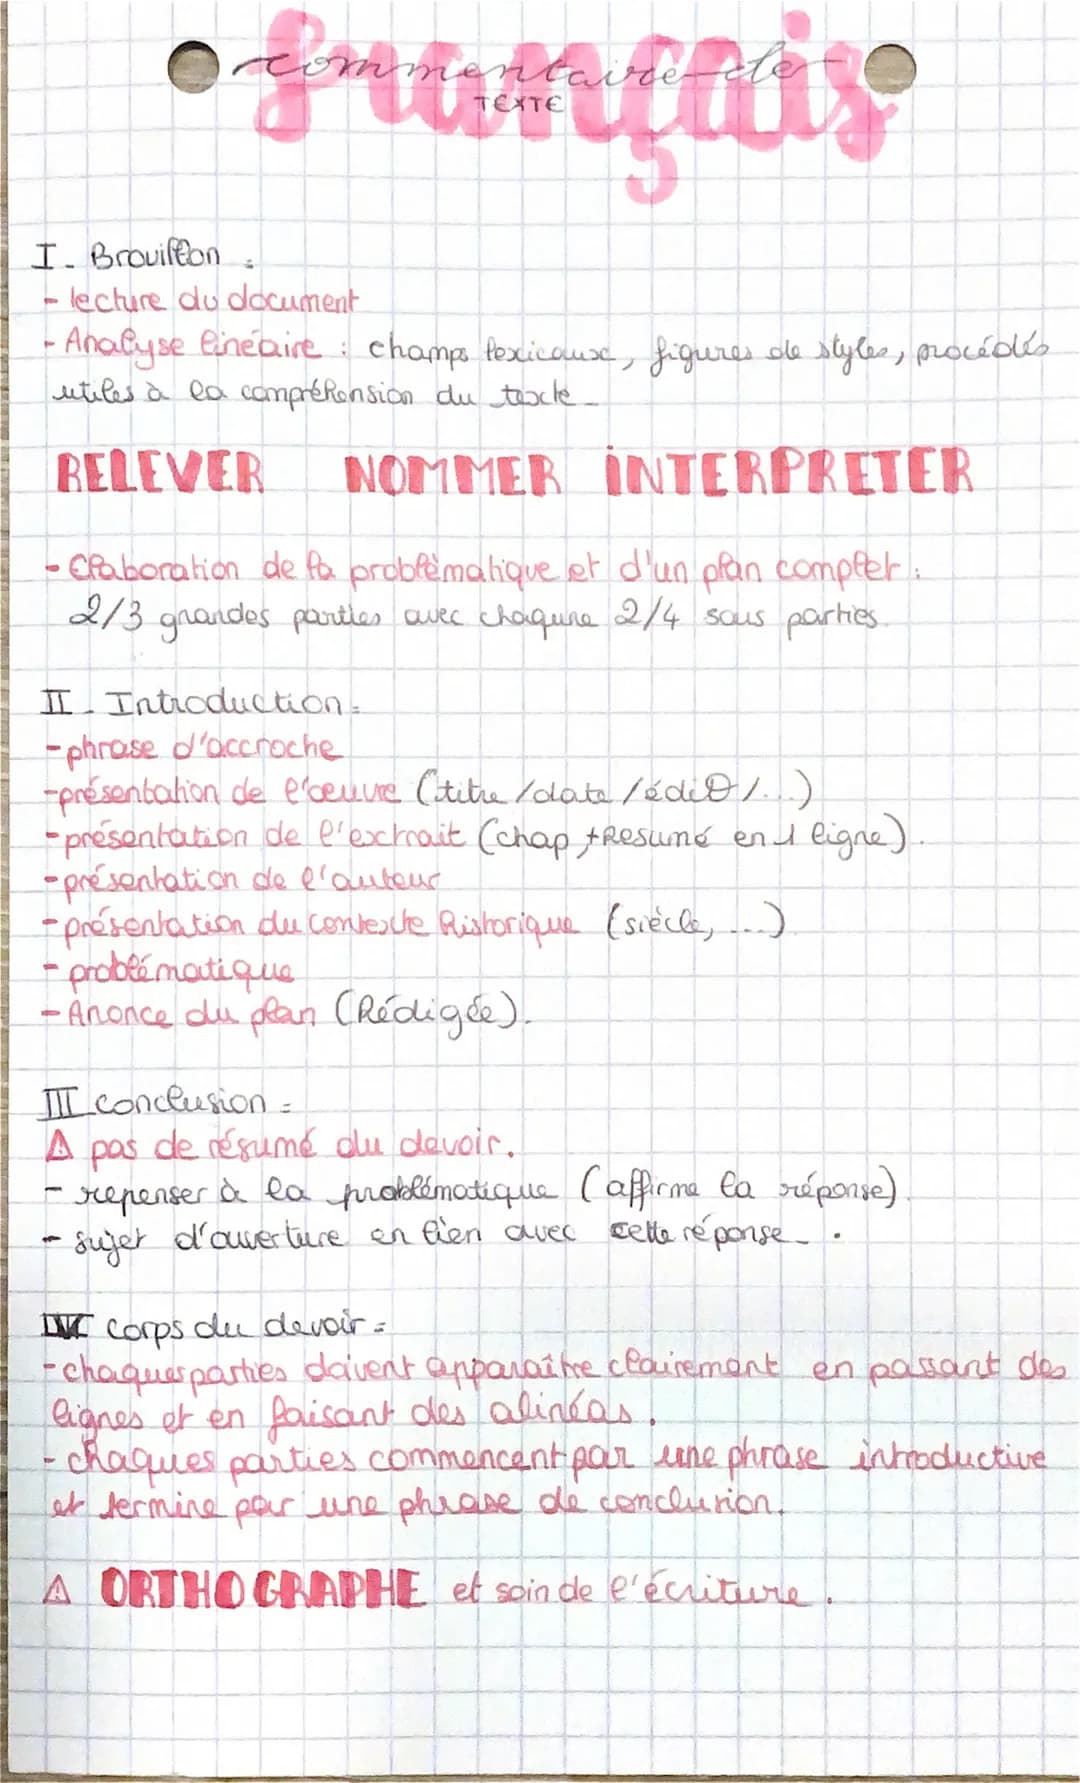 français
commentaire de
TEXTE
I - Brouillon :
- lecture du document
- Analyse linéaire : champs lexicaux, figures de styles, procédés
utiles à la compréhension du texte -
RELEVER NOMMER INTERPRETER
- Elaboration de la problèmatique et d'un plan complet :
2/3 grandes parties avec chaqune 2/4 sous parties.
II - Introduction :
- phrase d'accroche
- présentation de l'œuvre (titre / date / édit° / ...)
- présentation de l'extrait (chap + Resumé en 1 ligne).
- présentation de l'auteur
- présentation du contexte historique (siècle, ...)
- problématique
- Anonce du plan (Rédigée).
III conclusion :
⚠ pas de résumé du devoir.
- repenser à la problématique (affirme la réponse).
- sujet d'ouverture en lien avec cette réponse - .
IV corps du devoir :
- chaques parties doivent apparaître clairement en passant des
lignes et en faisant des alinéas.
- chaques parties commencent par une phrase introductive
et termine par une phrase de conclusion.
⚠ ORTHOGRAPHE et soin de l'écriture.